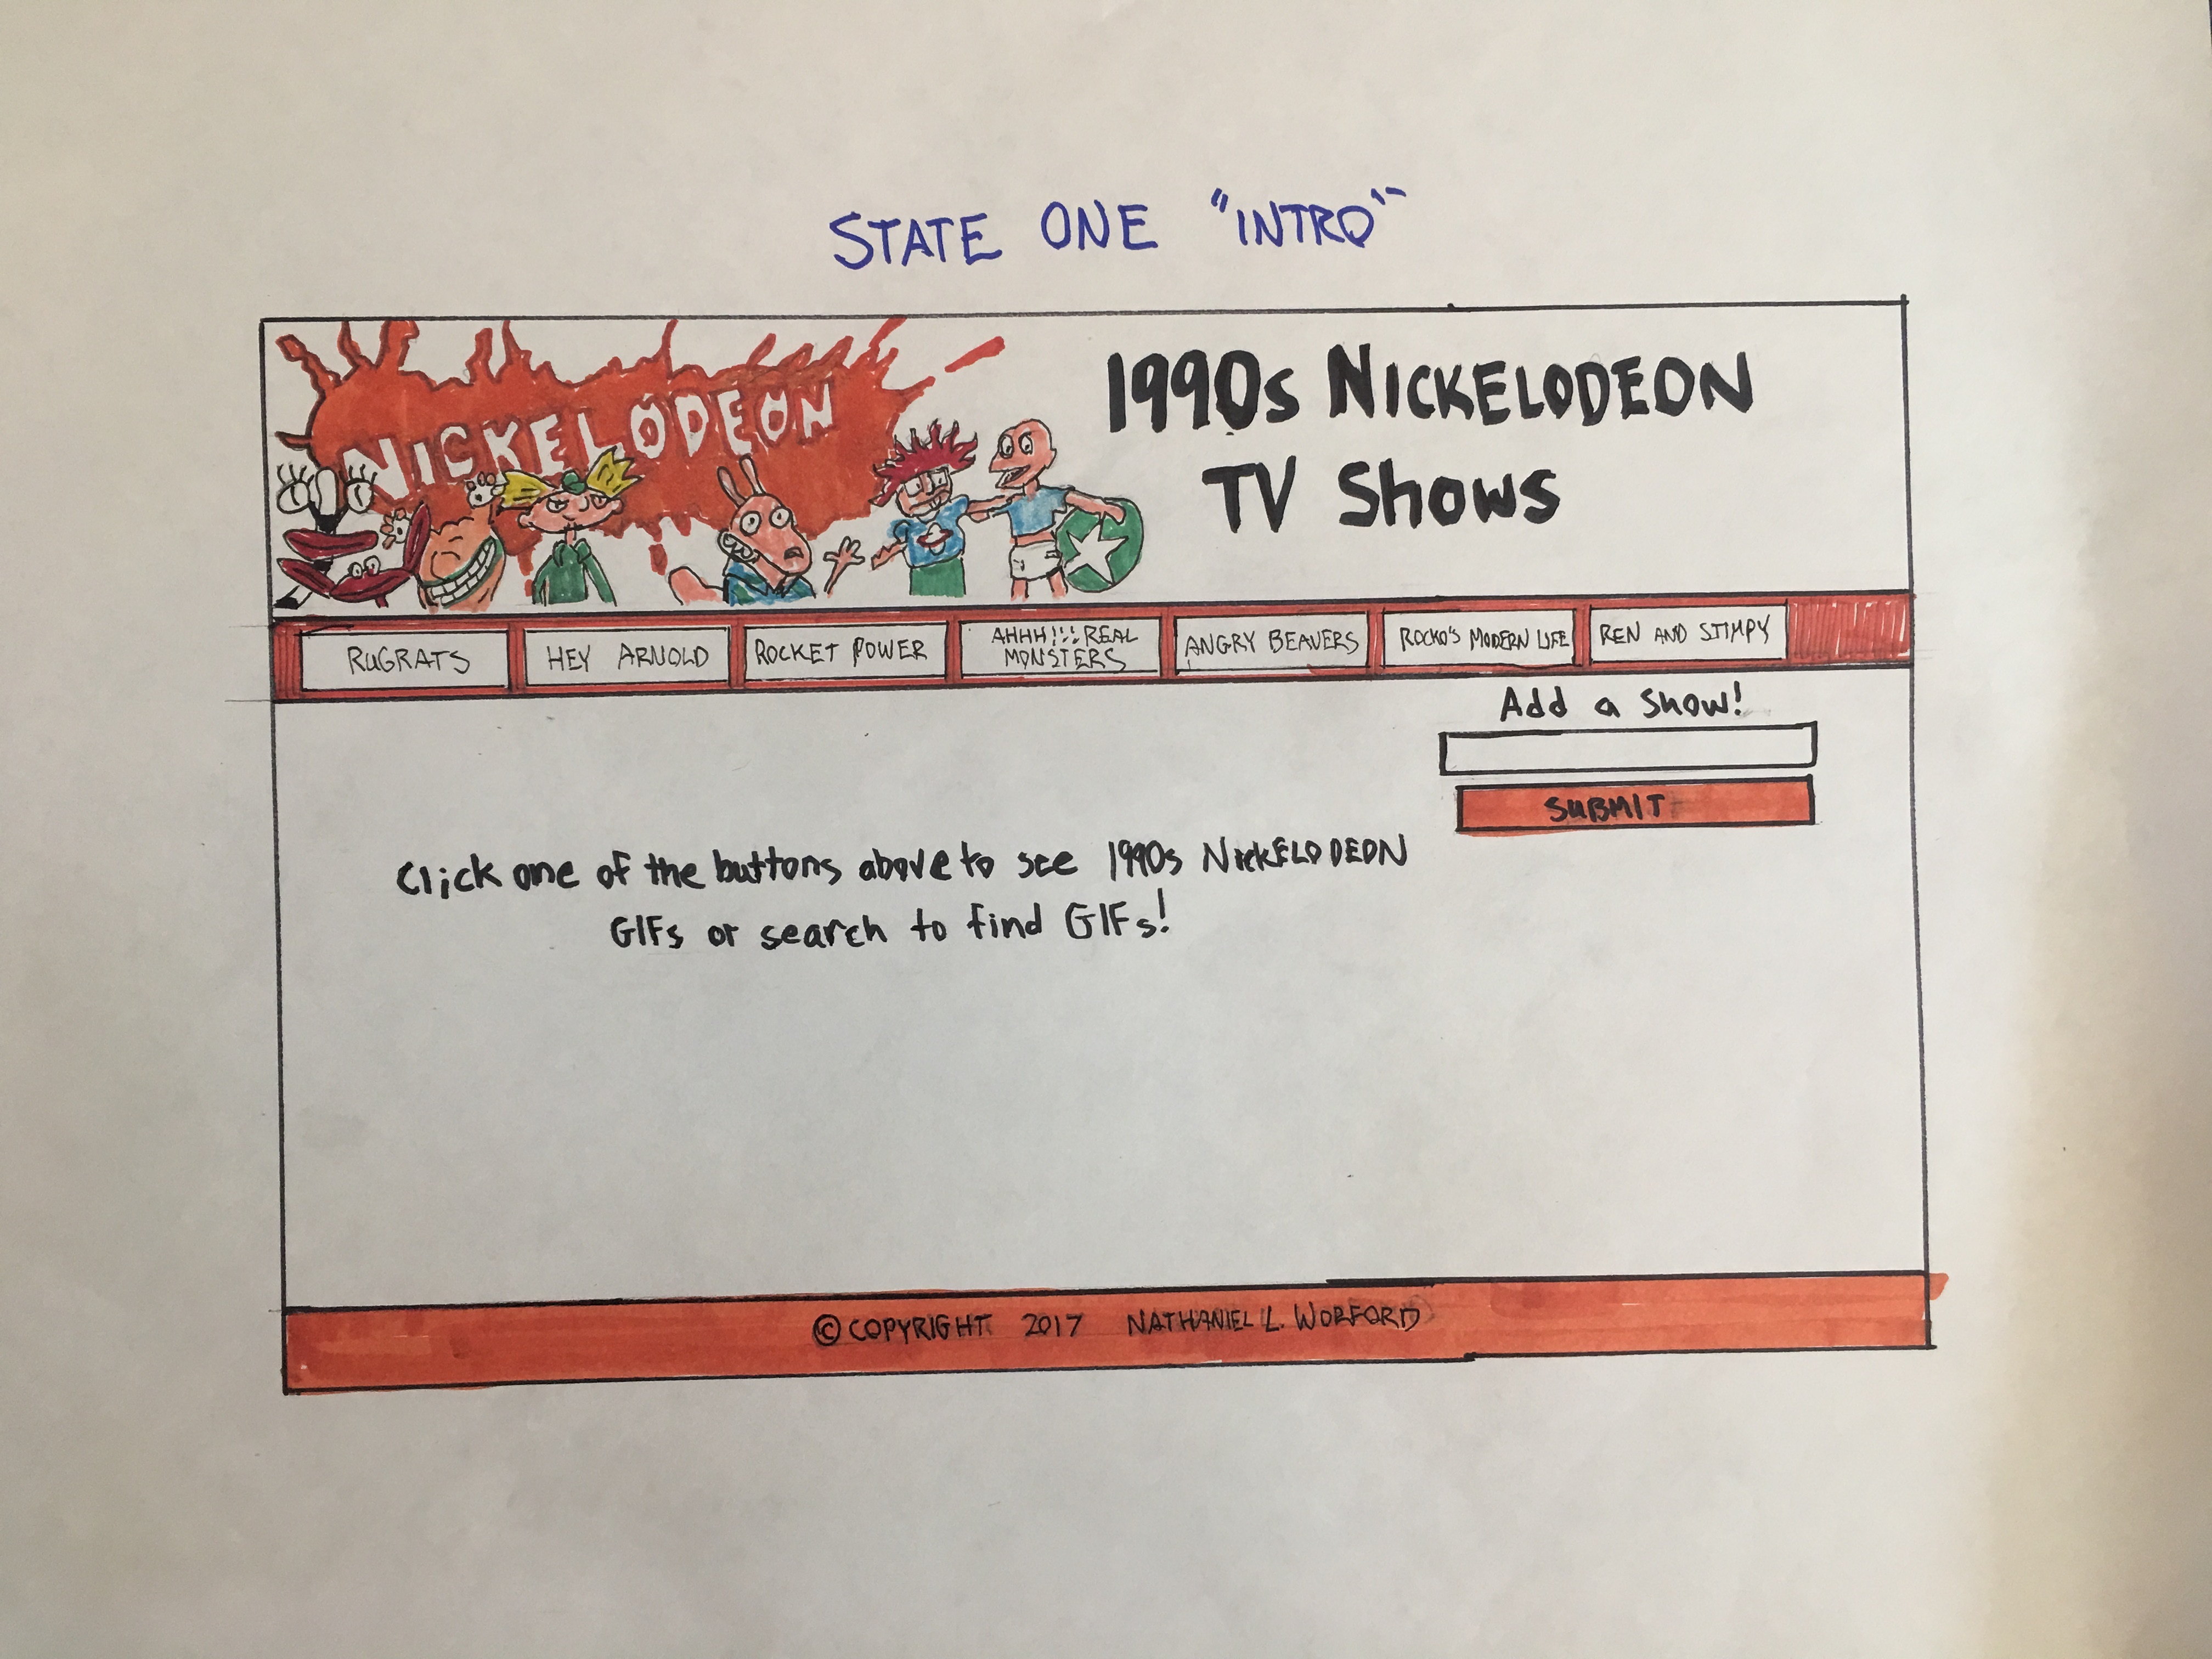 STATE ONE "INTRO"
NICKELODEON
1990s NICKELODEON
TV Shows
RUGRATS
HEY ARNOLD
ROCKET POWER
AHHH!!! REAL
MONSTERS
ANGRY BEAVERS
ROCKO'S MODERN LIFE
REN AND STIMPY
Add a Show!
SUBMIT
Click one of the buttons above to see 1990s NickELODEON
GIFs or search to find GIFs!
© COPYRIGHT 2017 NATHANIEL L. WORFORD